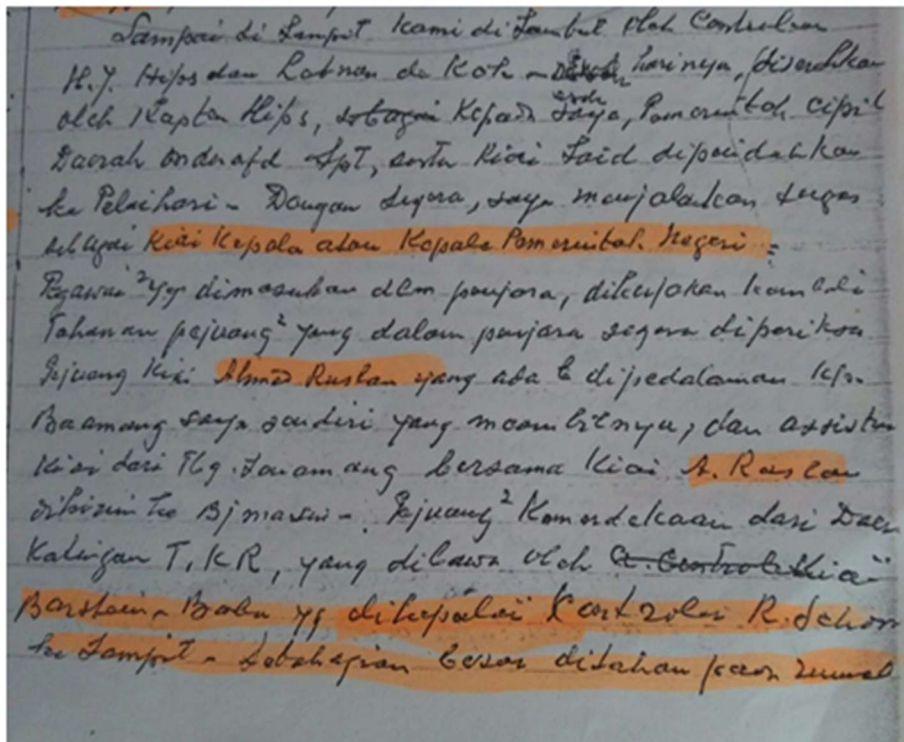 Sampai di Sampit kami di sambut oleh Controleur
H.J. Hips dan Letnan de Kok - harinya, diserahkan
oleh Kapten Hips, kepada saya, Pemerintah cipil
Daerah onderafd Spt, serta Kiai Said dipindahkan
ke Pelaihari - Dengan segera, saya menjalankan tugas
sebagai Kiai Kepala atau Kepala Pemerintah Negeri =
Pegawai² yg dimasukan dlm penjara, dikerjakan kembali
Tahanan pejuang² yang dalam penjara segera diperiksa
Pejuang Kiai Ahmad Ruslan yang ada dipedalaman kp.
Baamang saya sendiri yang mengambilnya, dan assisten
Kiai dari Tbg. Sanamang bersama Kiai A. Ruslan
dikirim ke Bjmasin - Pejuang² Kemerdekaan dari Daerah
Katingan T.K.R, yang dibawa oleh Kiai
Barstein - Baboe yg dikepalai Controleur R. Schon
ke Sampit - Sebahagian besar ditahan pada rumah